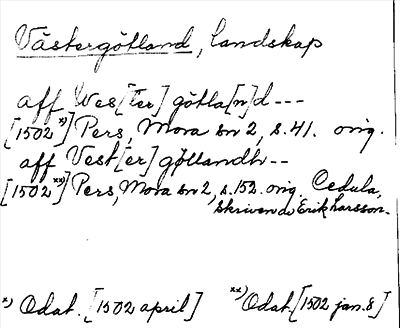 Västergötland, landskap
aff Wes[ter] götla[n]d ---
[1502 x)] Pers, Mora sn 2, s. 41. orig.
aff Vest[er] göllandh --
[1502 xx)] Pers, Mora sn 2, s. 152. orig. Cedula,
skriven av Erik Larsson.
x) Odat. [1502 april] xx) Odat. [1502 jan. 8]